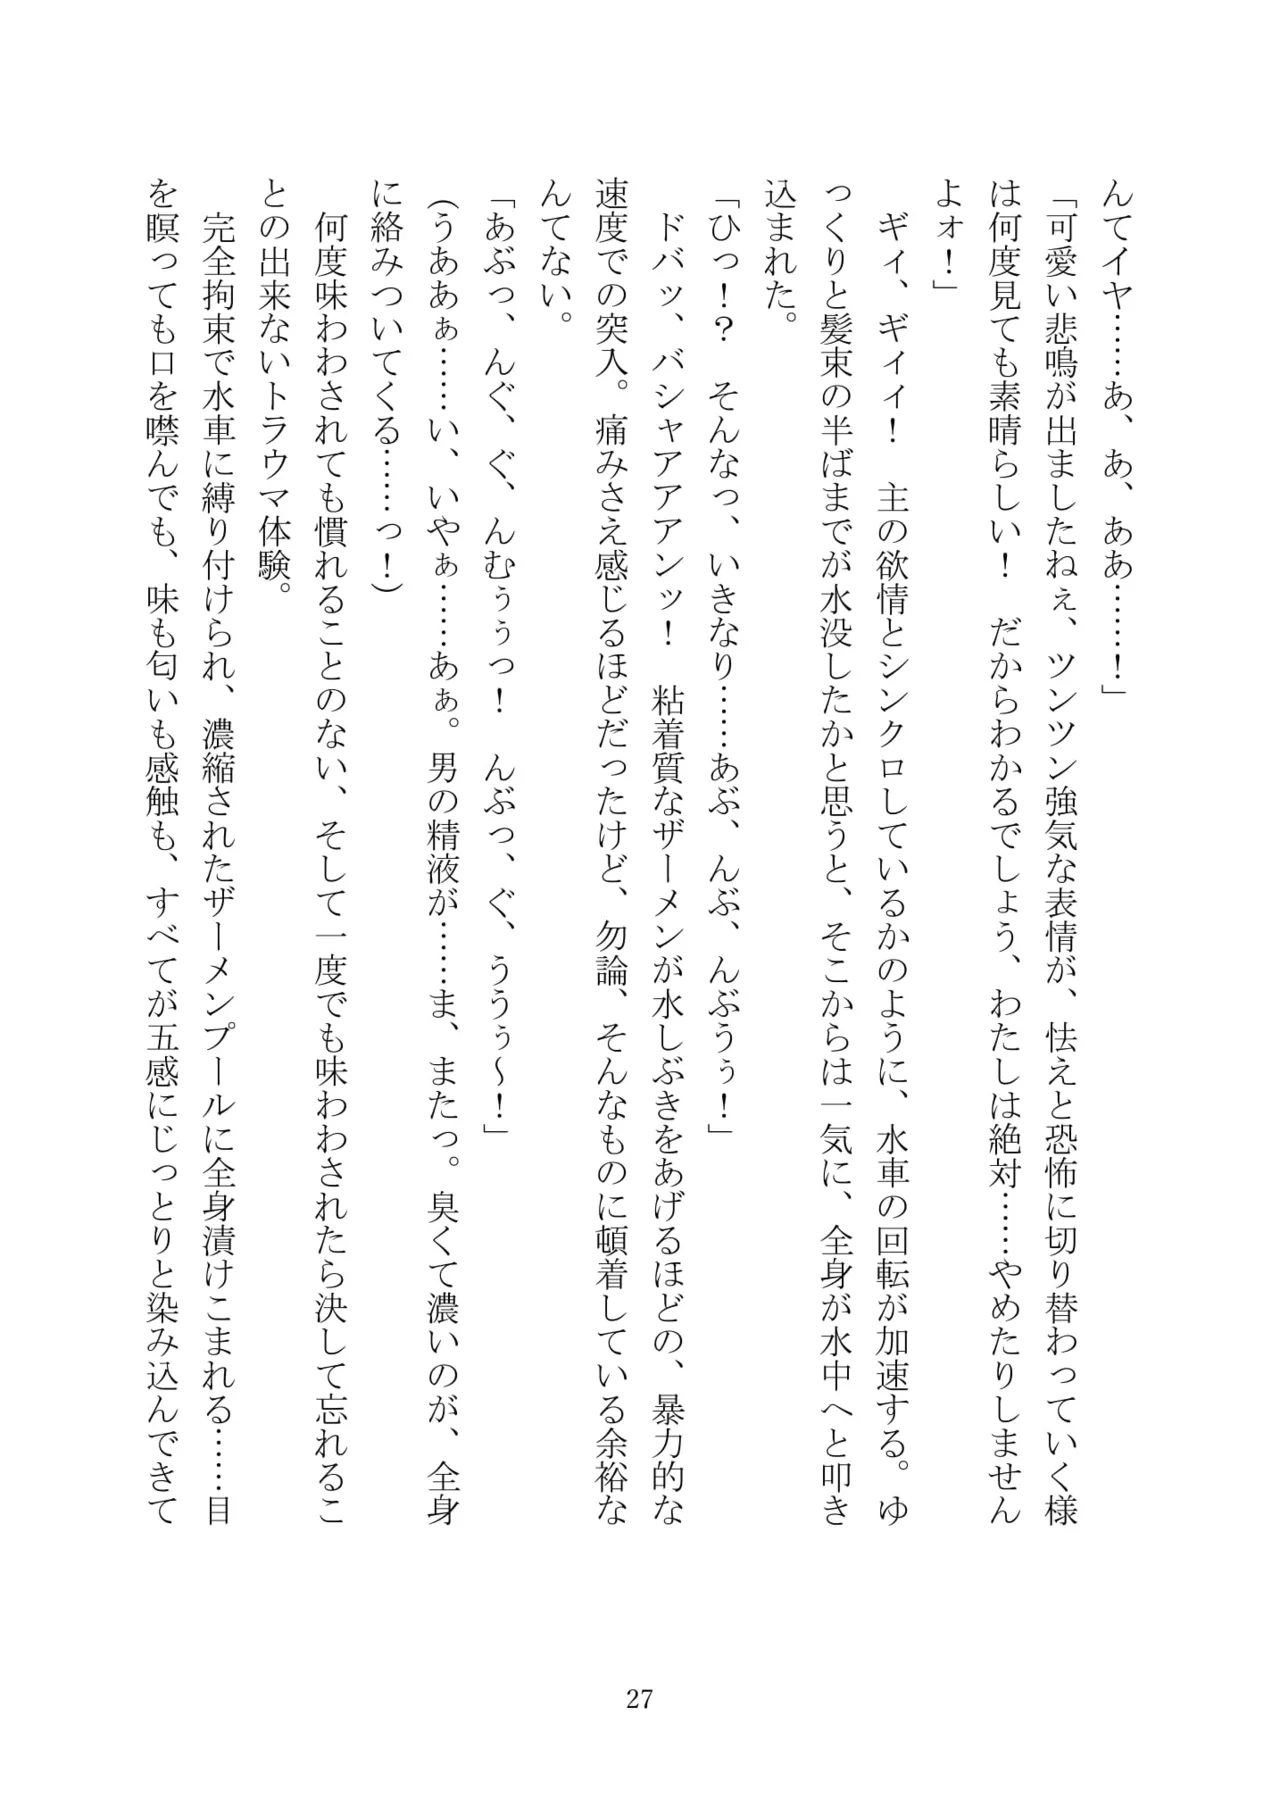 んてイヤ……あ、あ、ああ……！」
「可愛い悲鳴が出ましたねぇ、ツンツン強気な表情が、怯えと恐怖に切り替わっていく様
は何度見ても素晴らしい！　だからわかるでしょう、わたしは絶対……やめたりしません
よォ！」
　ギィ、ギィィ！　主の欲情とシンクロしているかのように、水車の回転が加速する。ゆ
っくりと髪束の半ばまでが水没したかと思うと、そこからは一気に、全身が水中へと叩き
込まれた。
「ひっ！？　そんなっ、いきなり……あぶ、んぶ、んぶうぅ！」
　ドバッ、バシャアアアンッ！　粘着質なザーメンが水しぶきをあげるほどの、暴力的な
速度での突入。痛みさえ感じるほどだったけど、勿論、そんなものに頓着している余裕な
んてない。
「あぶっ、んぐ、ぐ、んむぅぅっ！　んぶっ、ぐ、ううぅ～！」
（うああぁ……い、いやぁ……あぁ。男の精液が……ま、またっ。臭くて濃いのが、全身
に絡みついてくる……っ！）
　何度味わわされても慣れることのない、そして一度でも味わわされたら決して忘れるこ
との出来ないトラウマ体験。
　完全拘束で水車に縛り付けられ、濃縮されたザーメンプールに全身漬けこまれる……目
を瞑っても口を噤んでも、味も匂いも感触も、すべてが五感にじっとりと染み込んできて
27